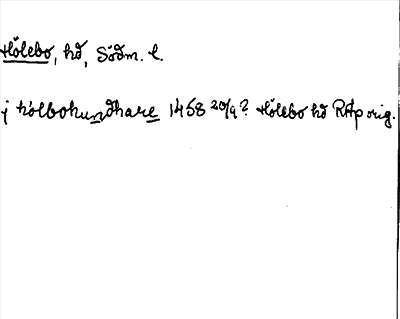 Hölebo, hd, Södm. l.
j hölbohundhare 1458 20/9? Hölebo hd RAp orig.